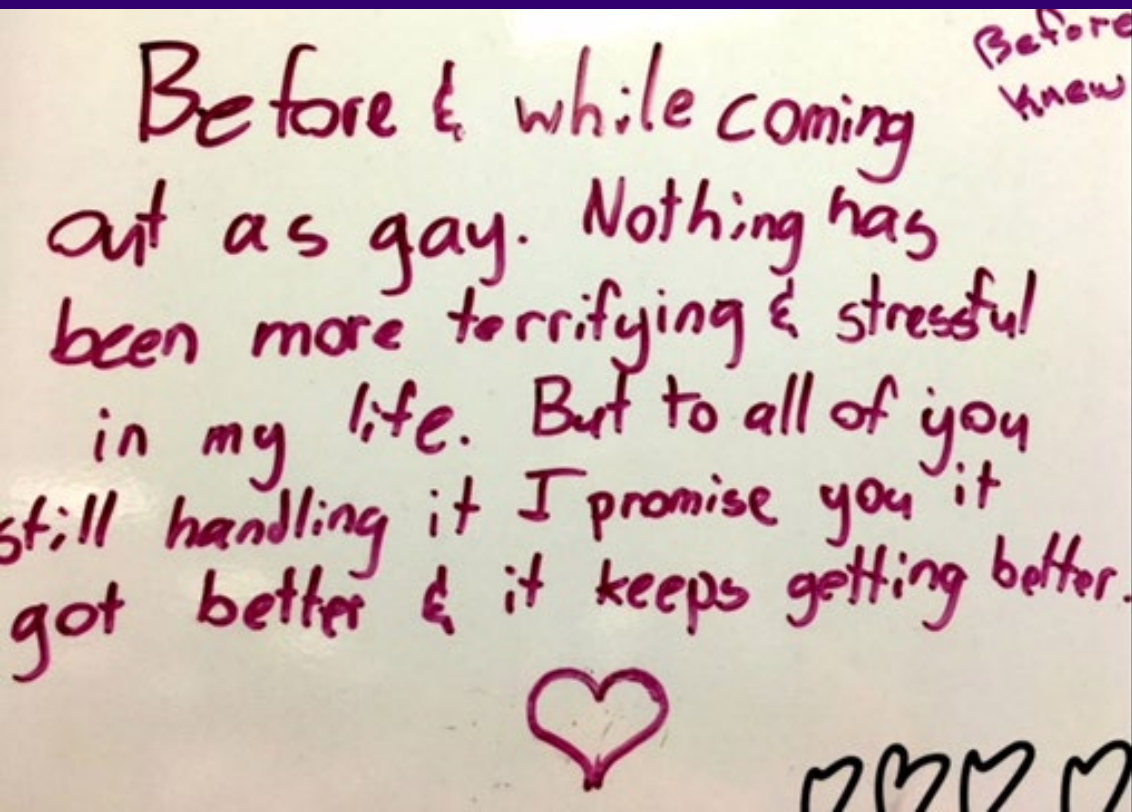 Before
Knew
Before & while coming
out as gay. Nothing has
been more terrifying & stressful
in my life. But to all of you
still handling it I promise you it
got better & it keeps getting better.